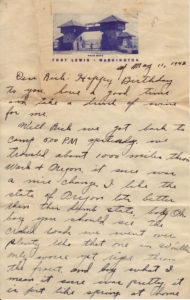 MAIN GATE
FORT LEWIS - WASHINGTON
May 11, 1942
Dear Buck: Happy Birthday
to you have a good time
and take a drink of wine
for me.
Well Buck we got back to
camp 5:00 PM yesterday, we
traveled about 1000 miles thru
Wash & Oregon it sure was
a nice change I like the
state of Oregon lots better
then this state,
boy you should see the
crooked roads we went over
plenty like that one in
only worse yet right thru
the forest, and boy what I
mean it sure was pretty it
is just like spring at home